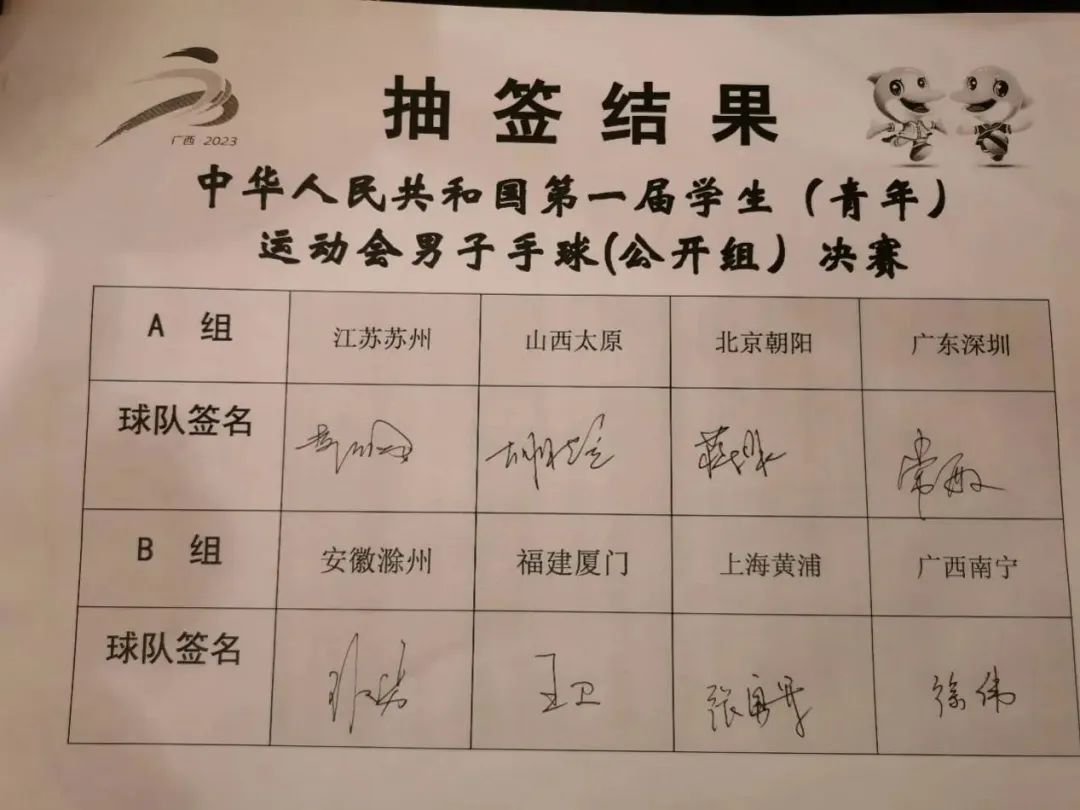 广西 2023
抽签结果
中华人民共和国第一届学生（青年）
运动会男子手球(公开组）决赛
A 组 江苏苏州 山西太原 北京朝阳 广东深圳
球队签名 常敏
B 组 安徽滁州 福建厦门 上海黄浦 广西南宁
球队签名 王卫 徐伟